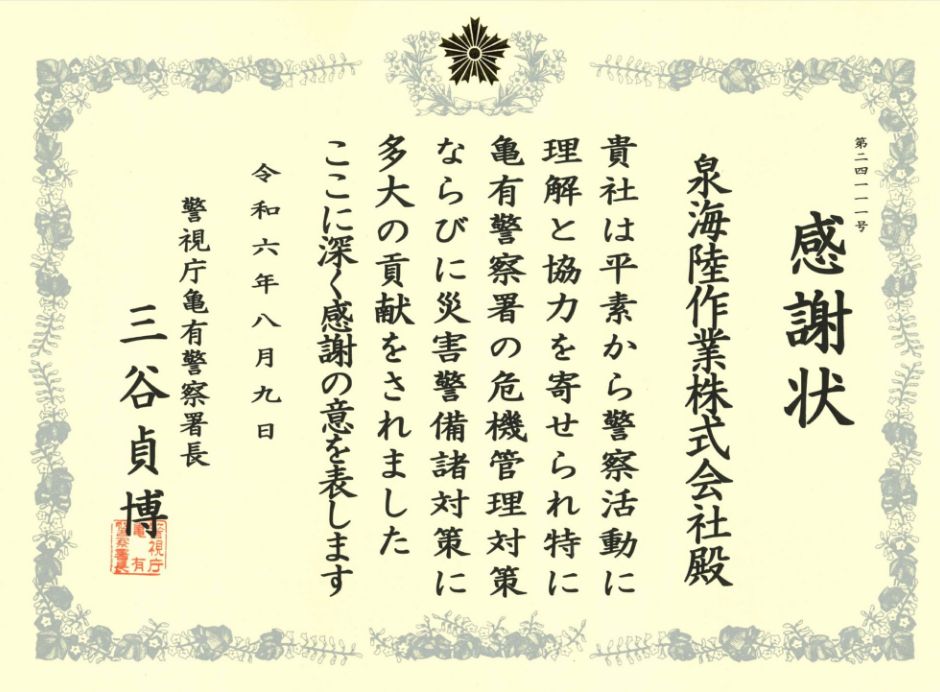 第二四一一一号
感謝状
泉海陸作業株式会社殿
貴社は平素から警察活動に
理解と協力を寄せられ特に
亀有警察署の危機管理対策
ならびに災害警備諸対策に
多大の貢献をされました
ここに深く感謝の意を表します
令和六年八月九日
警視庁亀有警察署長
三谷貞博
警視庁
亀有
警察署長